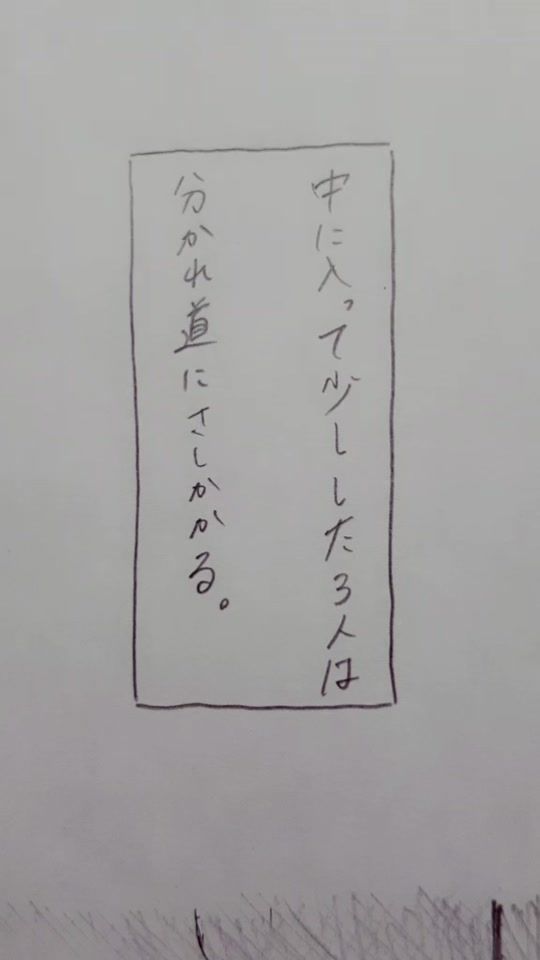 中に入って少ししたろ人は
分かれ道にさしかかる。